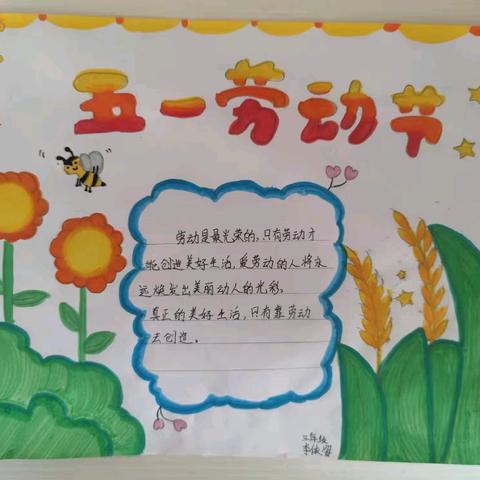 五一劳动节
劳动是最光荣的，只有劳动才
能创造美好生活，爱劳动的人将永
远焕发出美丽动人的光彩。
真正的美好生活，只有靠劳动
去创造。
三年级
李依